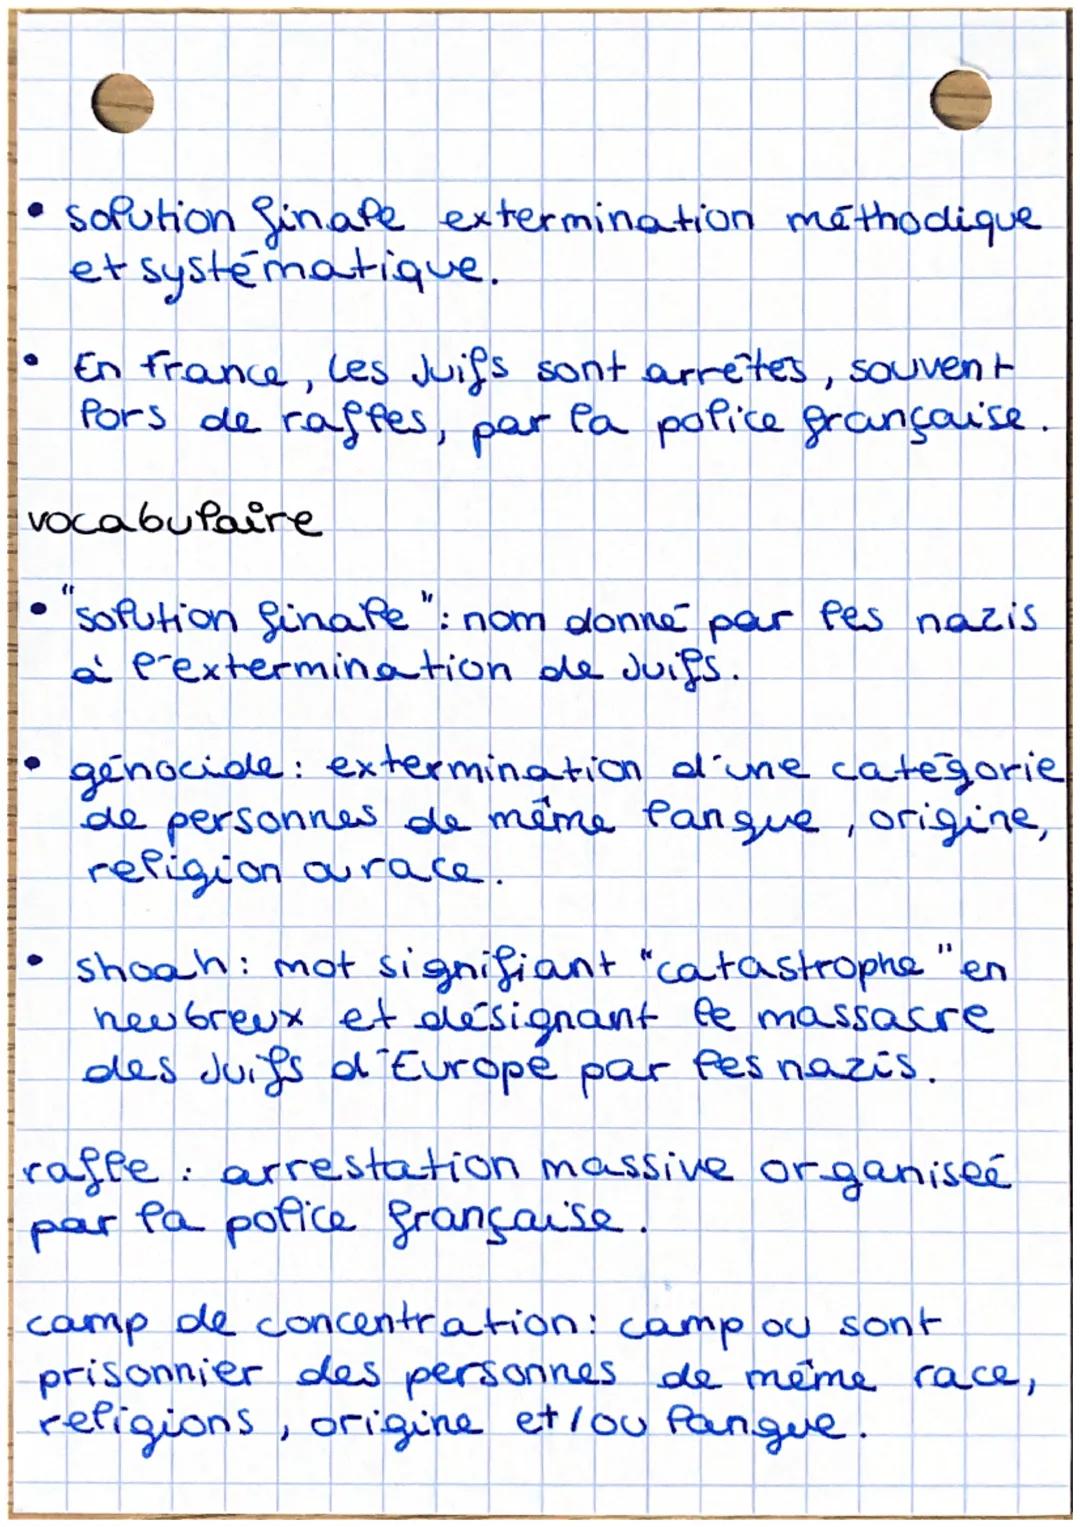 • solution finale extermination méthodique
et systématique.
• En france, les Juifs sont arrêtés, souvent
lors de raffles, par la police française.
vocabulaire
• "solution finale": nom donné par les nazis
à l'extermination de Juifs.
• génocide: extermination d'une catégorie
de personnes de même langue, origine,
religion ou race.
• shoah: mot signifiant "catastrophe" en
heubreux et désignant le massacre
des Juifs d'Europe par les nazis.
raffle : arrestation massive organiseé
par la police française.
camp de concentration: camp ou sont
prisonnier des personnes de même race,
religions, origine et/ou langue.